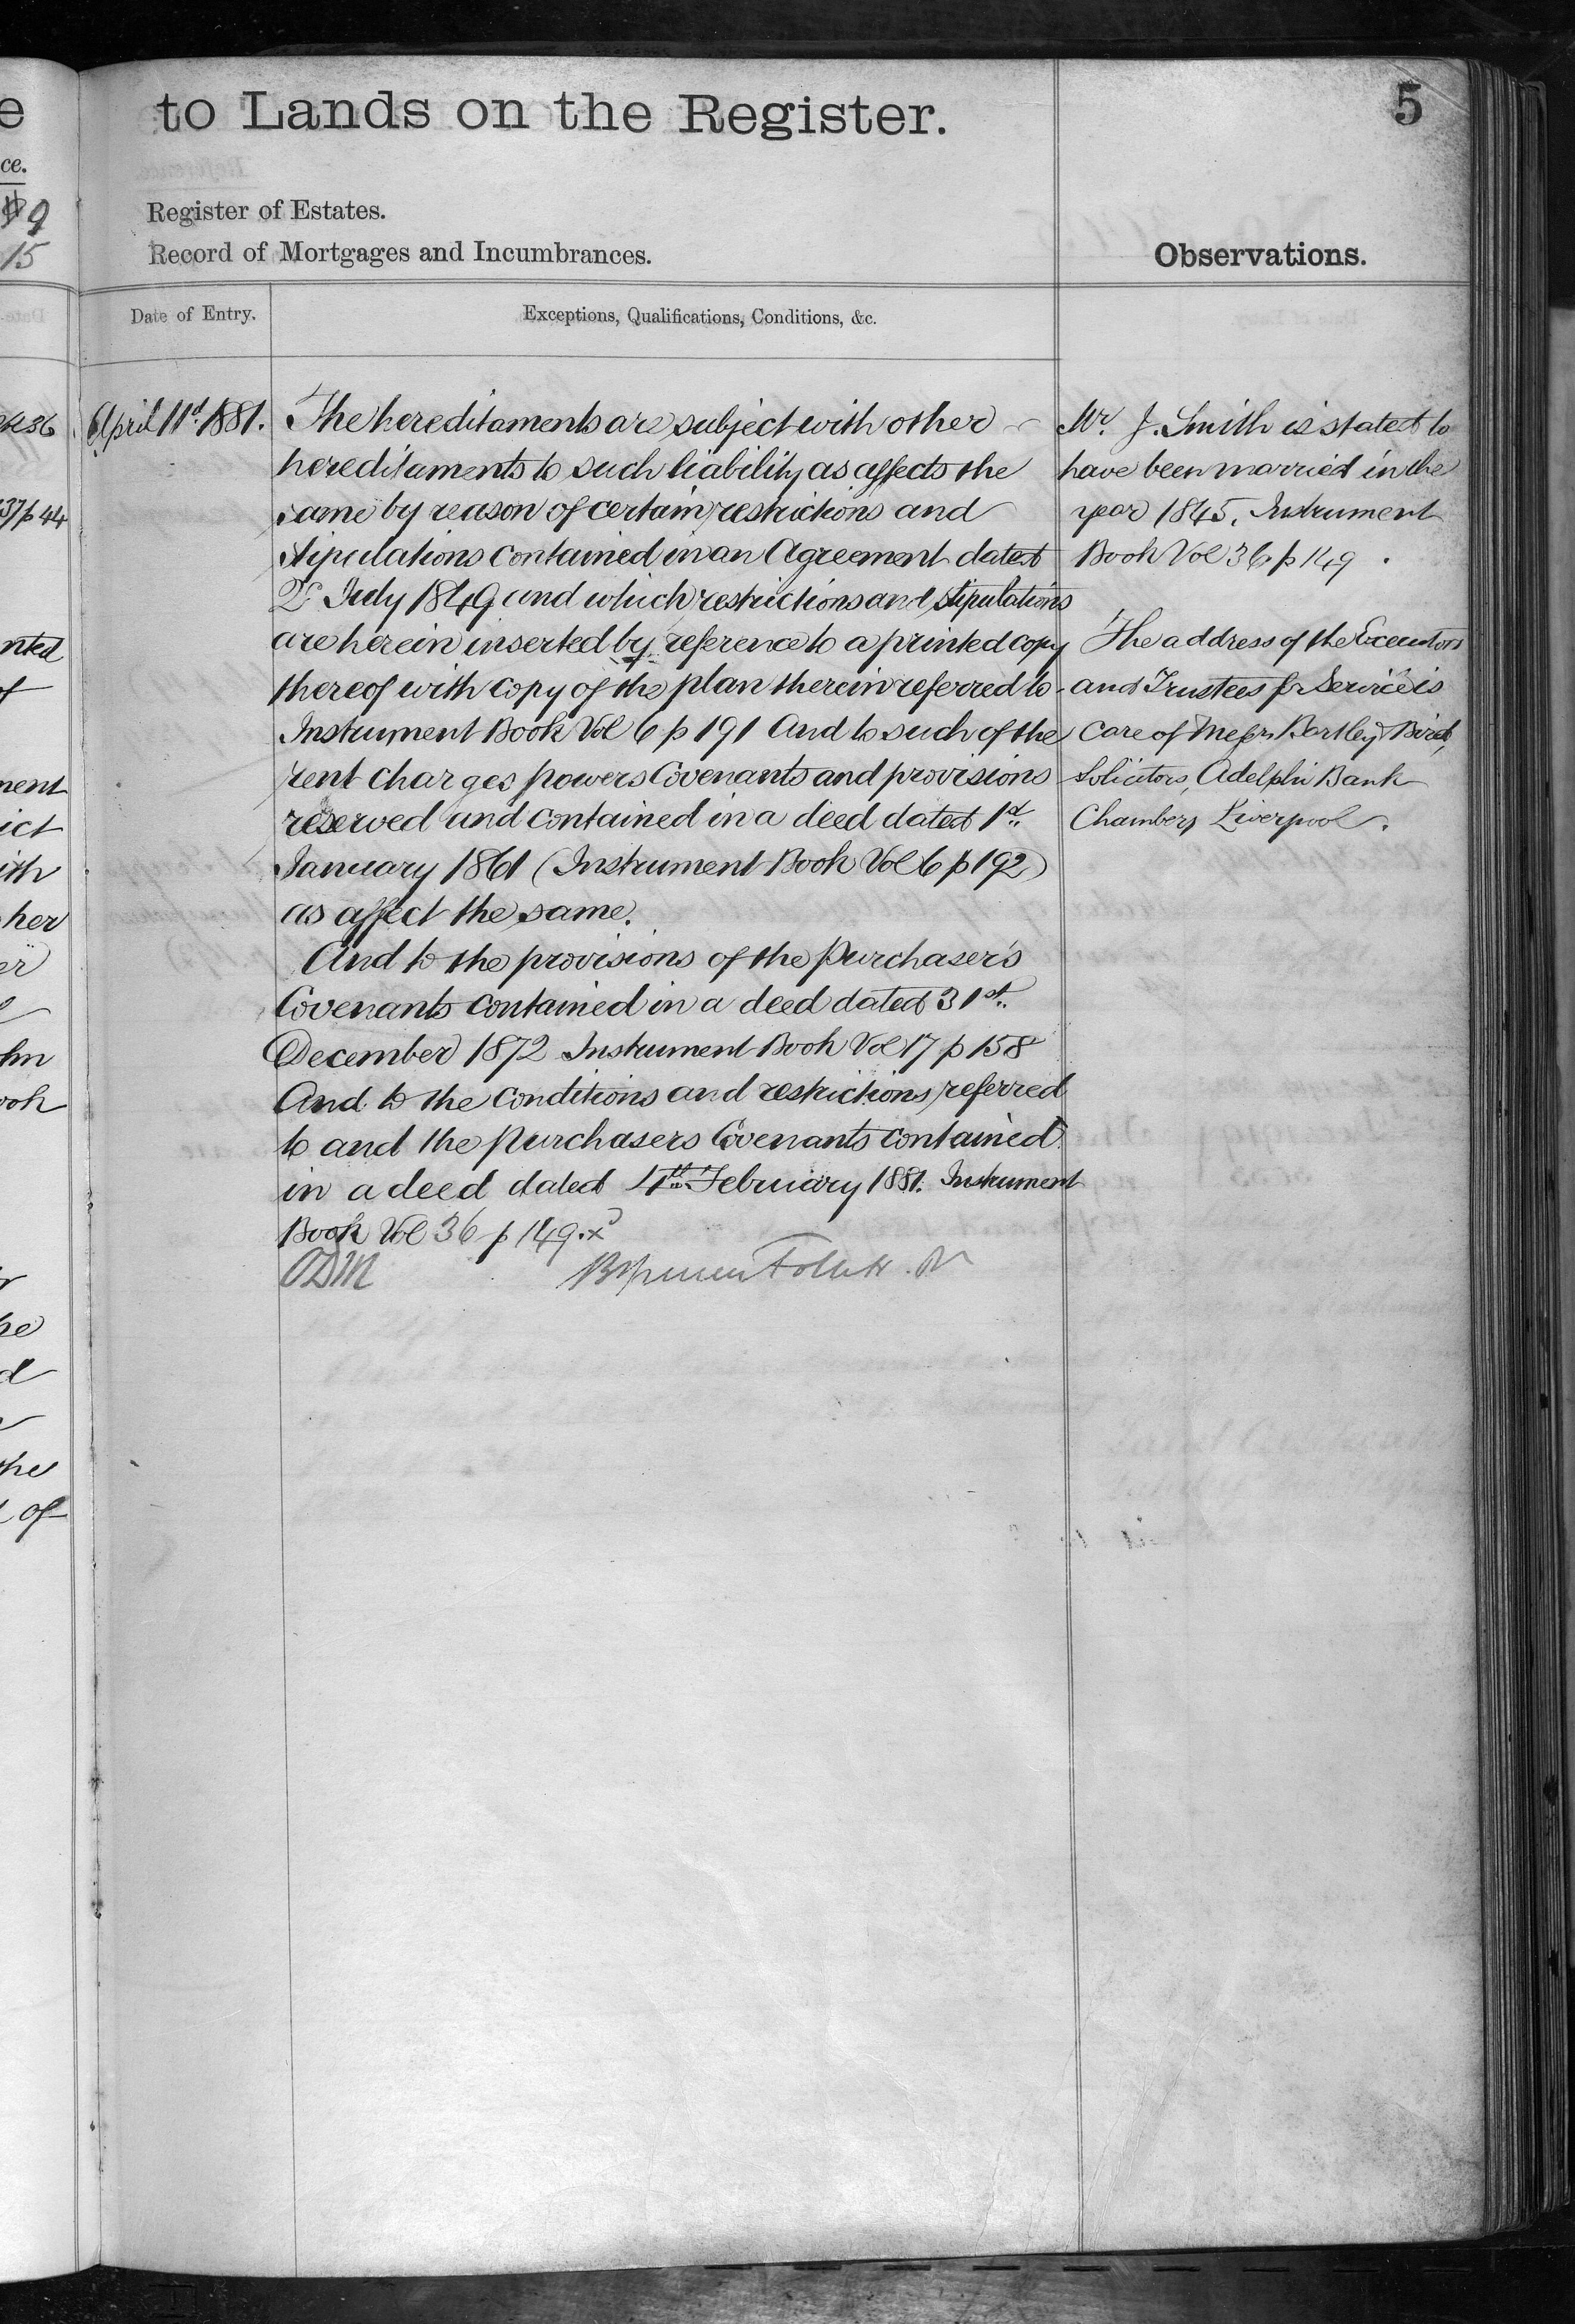 to Lands on the Register.
5
Register of Estates.
Record of Mortgages and Incumbrances.
Observations.
Date of Entry.
Exceptions, Qualifications, Conditions, &c.
April 11th 1881.
The hereditaments are subject with other
hereditaments to such liability as affects the
same by reason of certain restrictions and
stipulations contained in an Agreement dated
2d July 1849 and which restrictions and stipulations
are herein inserted by reference to a printed copy
thereof with copy of the plan therein referred to
Instrument Book Vol 6 p 191 And to such of the
rent charges powers Covenants and provisions
reserved and contained in a deed dated 1st
January 1861 (Instrument Book Vol 6 p 192)
as affect the same.
And to the provisions of the Purchaser's
Covenants contained in a deed dated 31st
December 1872 Instrument Book Vol 17 p 158
And to the Conditions and restrictions referred
to and the Purchasers Covenants contained
in a deed dated 4th February 1881. Instrument
Book Vol 36 p 149.x
ODM
Mr. J. Smith is stated to
have been married in the
year 1845. Instrument
Book Vol 36 p 149.
The address of the Executors
and Trustees for Service is
Care of Messrs Bartley & Bird,
Solicitors, Adelphi Bank
Chambers Liverpool.
e
ce.
9
15
36
37 p 44
of
ment
ict
ith
her
er
ook
he
d
the
of